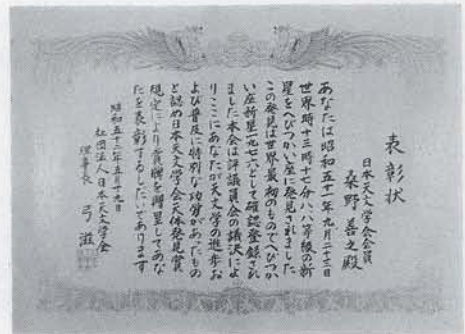 表彰状
日本天文学会会員
桑野善之殿
あなたは昭和五十一年九月二十三日
世界時十三時十七分八・八等級の新
星をへびつかい座に発見されました
この発見は世界最初のものでへびつか
い座新星一九七六として確認登録され
ました本会は評議員会の議決によ
りここにあなたが天文学の進歩お
よび普及に特別な功労があったもの
と認め日本天文学会天体発見賞
規定により賞牌を贈呈してあな
たを表彰するしだいであります
昭和五十二年五月十九日
社団法人日本天文学会
理事長 弓滋